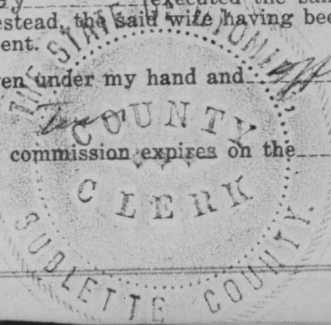 executed the
estead, the said wife having bee
ent.
en under my hand and
commission expires on the
THE STATE OF WYOMING,
COUNTY
CLERK
SUBLETTE COUNTY.